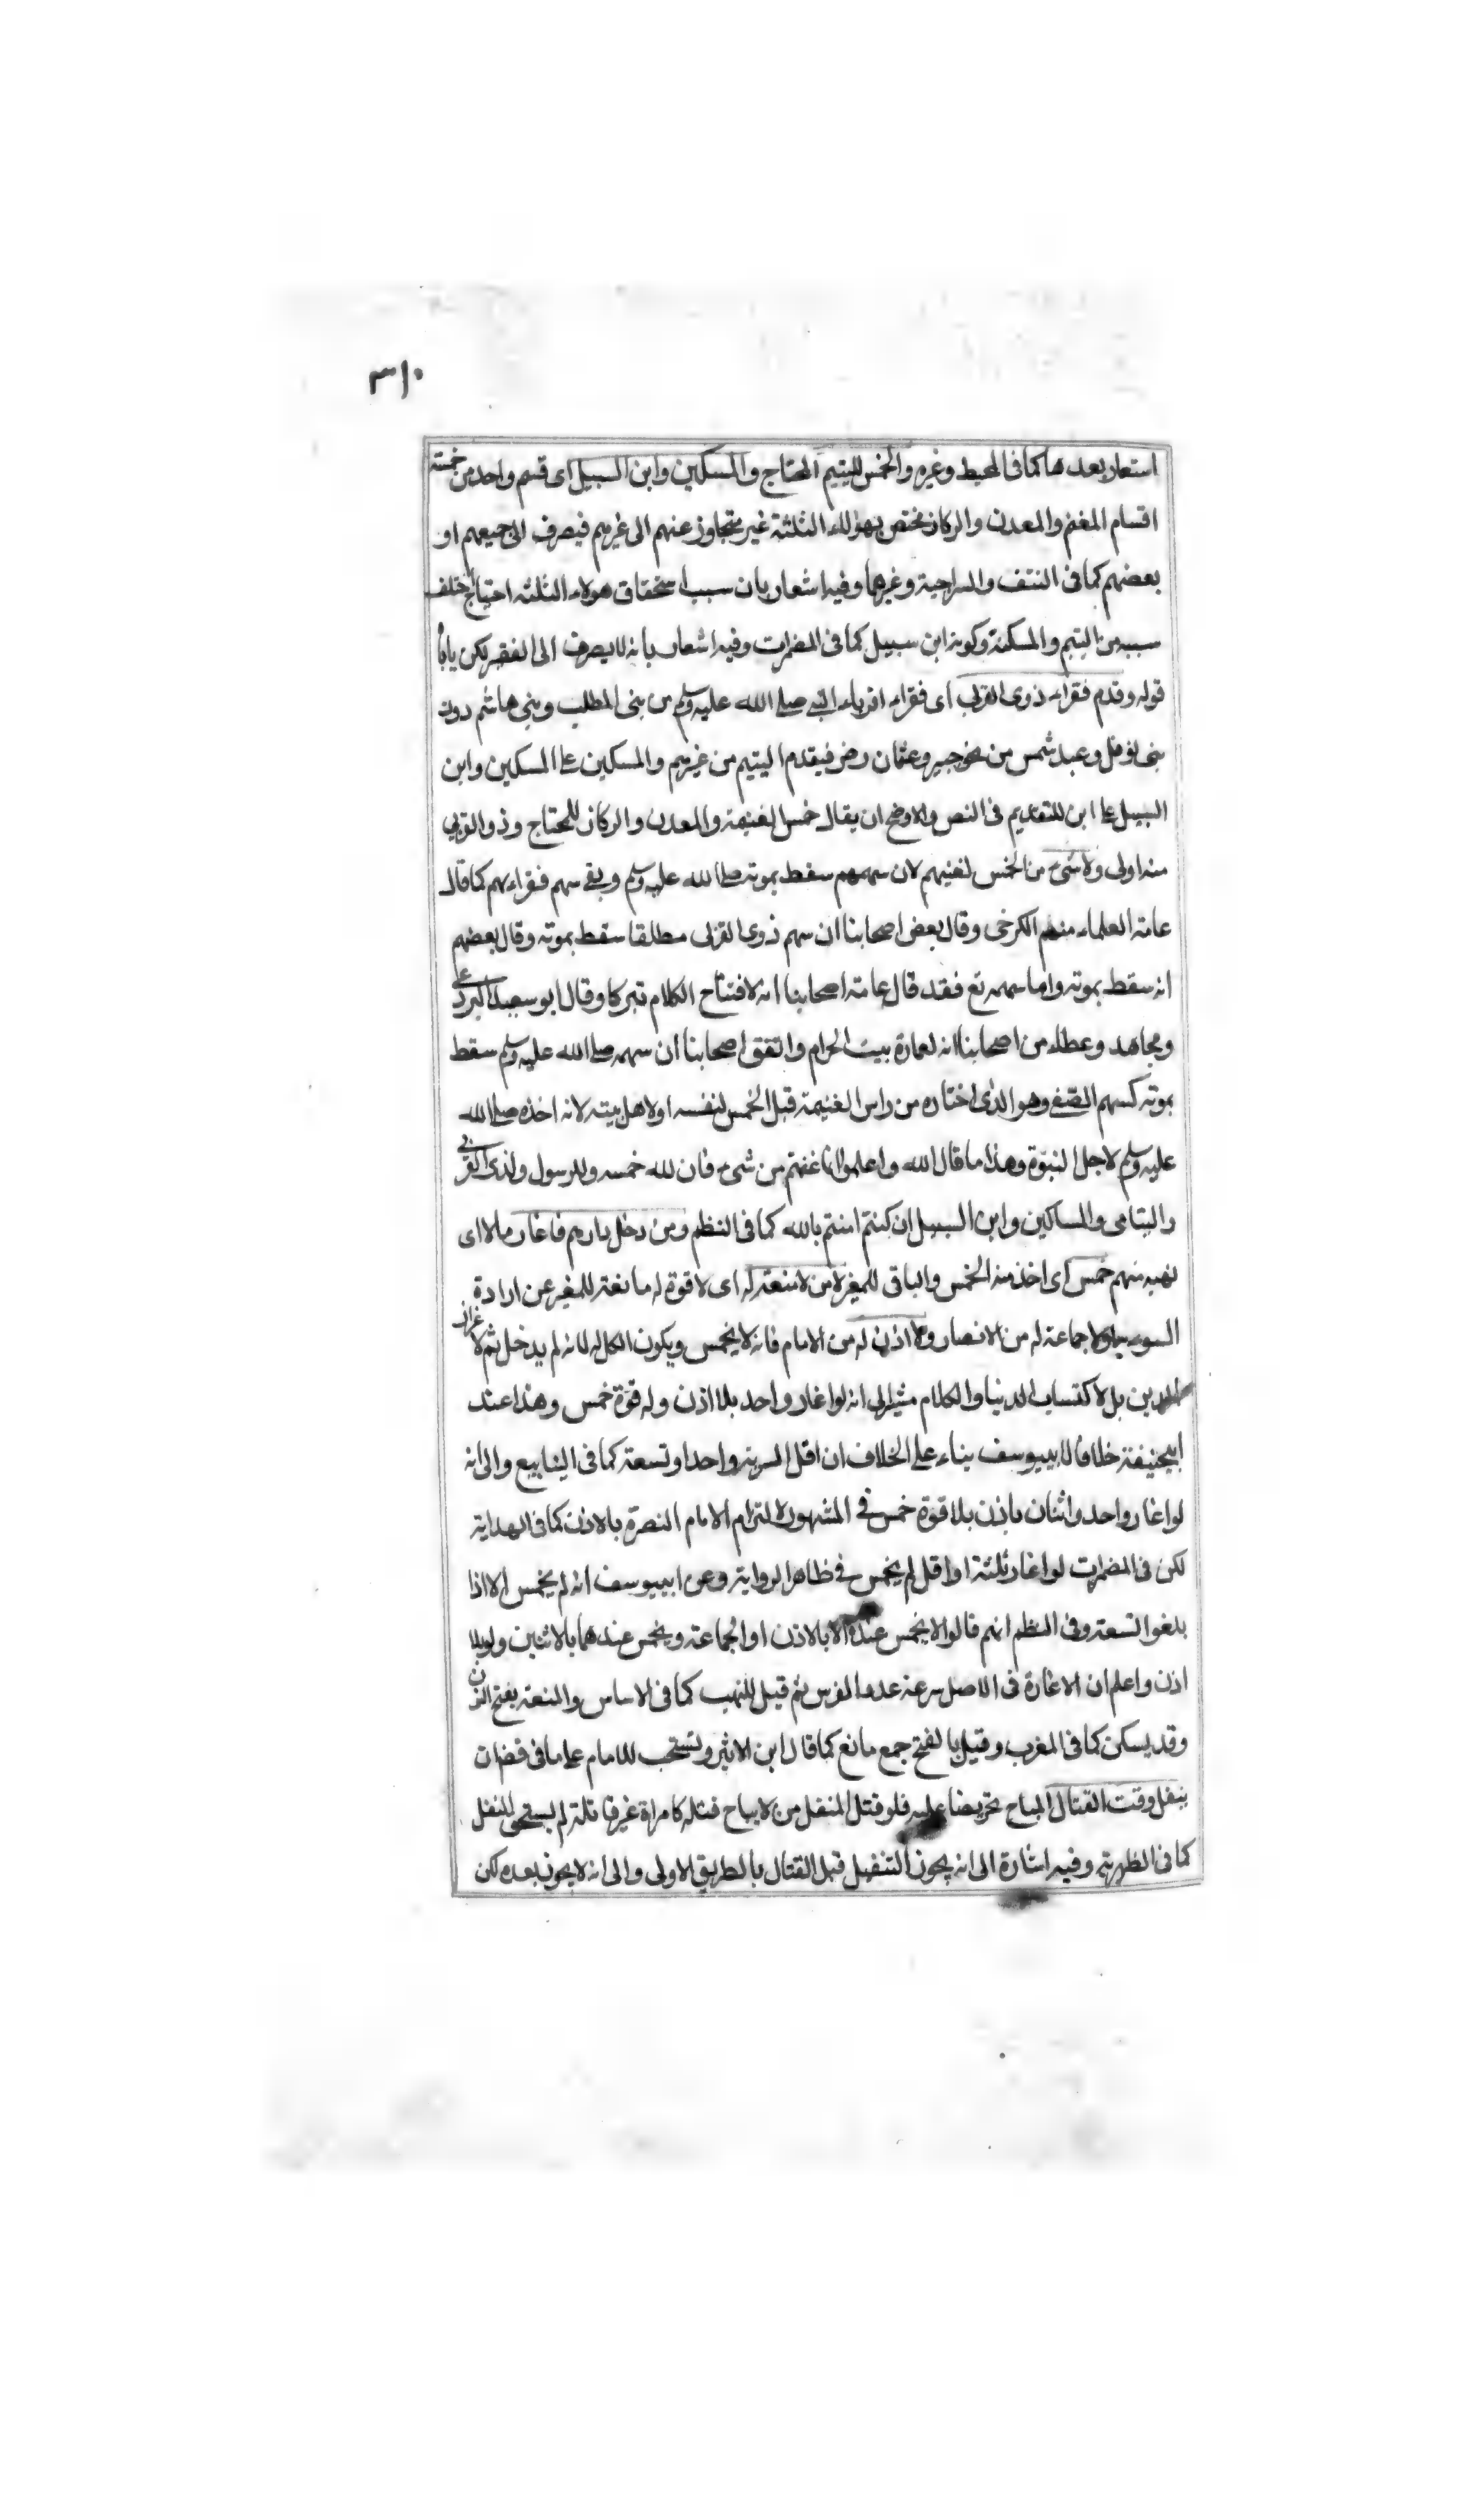 ٣١٠
استعار بعدها كما فى المحيط وغيره والخمس لليتيم المحتاج والمسكين وابن السبيل اى قسم واحد من خمسة
اقسام المغنم والمعدن والركاز مختص بهؤلاء الثلثة غير متجاوز عنهم الى غيرهم فيصرف الى جميعهم او
بعضهم كما فى النتف والسراجية وغيرهما وفيه اشعار بان سبب استحقاق هولاء الثلثه احتياج اختلف
سببه من اليتيم والمسكنة وكونه ابن سبيل كما فى المضمرات وفيه اشعار بانه لا يصرف الى الفقير لكن ياباه
قوله وقدم فقراء ذوى القربى اى فقراء اقرباء النبى صلى الله عليه وسلم من بنى المطلب وبنى هاشم دون
بنى نوفل وعبد شمس من نحو جبير وعثمان رض فيقدم اليتيم من غيرهم والمسكين على المسكين وابن
السبيل على ابن للتقديم فى النص والاوضح ان يقال خمس الغنيمة والمعدن والركاز للمحتاج وذو القربى
منه اولى ولا شئ من الخمس لغنيهم لان سهمهم سقط بموته صلى الله عليه وسلم وبقى سهم فقراءهم كما قال
عامة العلماء منهم الكرخى وقال بعض اصحابنا ان سهم ذوى القربى مطلقا سقط بموته وقال بعضهم
انه سقط بموته واما سهمه تع فقد قال عامة اصحابنا انه لافتتاح الكلام تبركا وقال ابو سعيد البردعى
ومجاهد وعطاء من اصحابنا انه لعمارة بيت الحرام واتفق اصحابنا ان سهمه صلى الله عليه وسلم سقط
بموته كسهم الصفى وهو الذى اختاره من راس الغنيمة قبل الخمس لنفسه او لاهل بيته لانه اخذه صلى الله
عليه وسلم لاجل النبوة وهذا ما قال الله واعلموا انما غنمتم من شئ فان لله خمسه وللرسول ولذى القربى
واليتامى والمساكين وابن السبيل ان كنتم امنتم بالله كما فى النظم ومن دخل دارهم فاغار مالا اى
نهبه منهم خمس اى اخذ منه الخمس والباقى للمغير لا من لا منعة له اى لا قوة له مانعة للمغير عن ارادة
السوء به ولا جماعة له من الانصار ولا اذن له من الامام فانه لا يخمس ويكون الكل له لانه لم يدخل ثم لاعزاز
الدين بل لاكتساب الدنيا والكلام مشير الى انه لو اغار واحد بلا اذن وله قوة خمس وهذا عند
ابيحنيفة خلافا لابيوسف بناء على الخلاف ان اقل السرية واحد او تسعة كما فى الينابيع والى انه
لو اغار واحد واثنان باذن بلا قوة خمس فى المشهور لالتزام الامام النصرة بالاذن كما فى الهداية
لكن فى المضمرات لو اغار ثلثة او اقل لم يخمس فى ظاهر الرواية وعن ابييوسف انه لم يخمس الا اذا
بلغوا التسعة وفى النظم انهم قالوا لا يخمس عنده الا بالاذن او الجماعة ويخمس عندهما بالاثنين ولو بلا
اذن واعلم ان الاغارة فى الاصل سرعة عدو الفرس ثم قيل للنهب كما فى الاساس والمنعة بفتح النون
وقد يسكن كما فى المغرب وقيل بالفتح جمع مانع كما قال ابن الاثير ويستحب للامام على ما فى قضان
ينفل وقت القتال المباح تحريضا عليه فلو قتل المنفل من لا يباح قتله كامراة غير قاتلة لم يستحق النفل
كما فى الظهرية وفيه اشارة الى انه يجوز التنفيل قبل القتال بالطريق الاولى والى انه لا يجوز بعده لكن